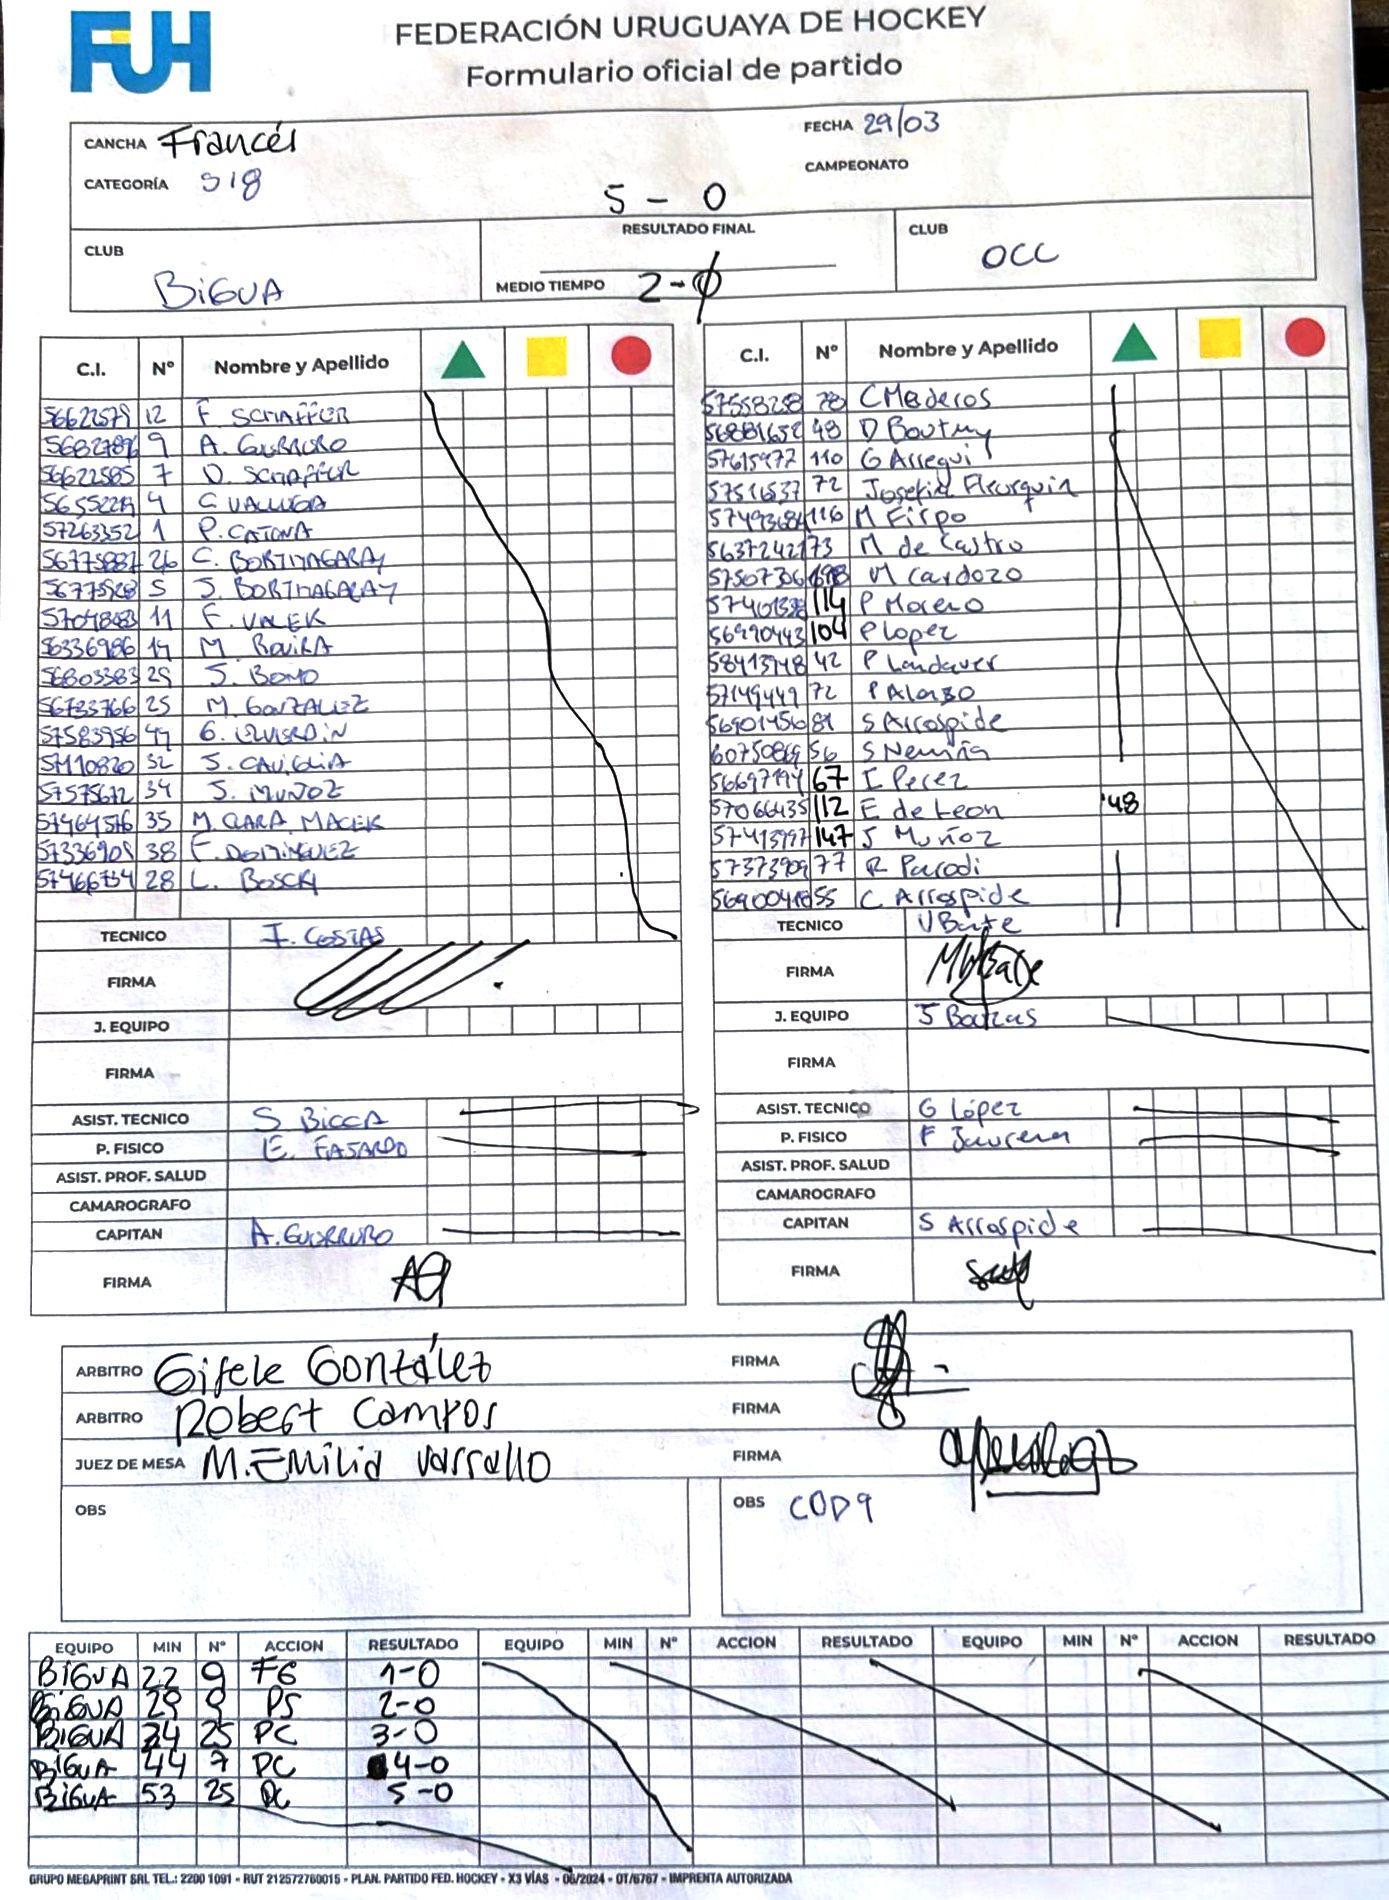 FUH
FEDERACIÓN URUGUAYA DE HOCKEY
Formulario oficial de partido
CANCHA Francés
FECHA 29/03
CATEGORÍA S18
CAMPEONATO
5 - 0
RESULTADO FINAL
CLUB BiGUA
MEDIO TIEMPO 2-0
CLUB OCC
C.I. Nº Nombre y Apellido
56622579 12 F SCHAFFER
9 A. GUERRERO
56622585 7 D. SCHAFFER
4
57263352 1 P. CATONA
26 C. BORTHAGARAY
5 S. BORTHAGARAY
11 F. VALEK
56336986 14 M. ROVIRA
56803383 29 S. BONO
56733766 25 M. GONZALEZ
57583956 44
32 S. CAVIGLIA
57575672 34 S. MUÑOZ
57464576 35 M. CLARA MACEK
38 F. DOMINGUEZ
28 L. BOSCH
TECNICO I. COSTAS
FIRMA
J. EQUIPO
FIRMA
ASIST. TECNICO S BICCA
P. FISICO E. FAJARDO
ASIST. PROF. SALUD
CAMAROGRAFO
CAPITAN A. GUERRERO
FIRMA AG
C.I. Nº Nombre y Apellido
78 C Mederos
56881652 48 D Boutmy
57615977 110 G Arregui
57516537 72 Josefin Fleurquin
116 M Firpo
73 M de Castro
M Cardozo
114 P Moreno
56990443 104 P Lopez
58413948 42 P Landaver
57149449 72 P Alonso
56901456 81 S Arrospide
56 S Nemiña
67 I Perez
57066435 112 E de Leon '48
57413997 147 J Muñoz
57373909 77 R Parodi
55 C Arrospide
TECNICO V Barte
FIRMA
J. EQUIPO
FIRMA
ASIST. TECNICO G López
P. FISICO F Jaurena
ASIST. PROF. SALUD
CAMAROGRAFO
CAPITAN S Arrospide
FIRMA
ARBITRO Gisele González FIRMA
ARBITRO Robert Campos FIRMA
JUEZ DE MESA M. Emilia Varrallo FIRMA
OBS
OBS COD9
EQUIPO MIN Nº ACCION RESULTADO EQUIPO MIN Nº ACCION RESULTADO EQUIPO MIN Nº ACCION RESULTADO
BIGUA 22 9 FG 1-0
BIGUA 29 9 PS 2-0
BIGUA 34 25 PC 3-0
BIGUA 44 7 PC 4-0
BIGUA 53 25 PC 5-0
GRUPO MEGAPRINT SRL TEL.: 2200 1091 - RUT 212572760015 - PLAN. PARTIDO FED. HOCKEY - X3 VÍAS - 06/2024 - OT/6767 - IMPRENTA AUTORIZADA